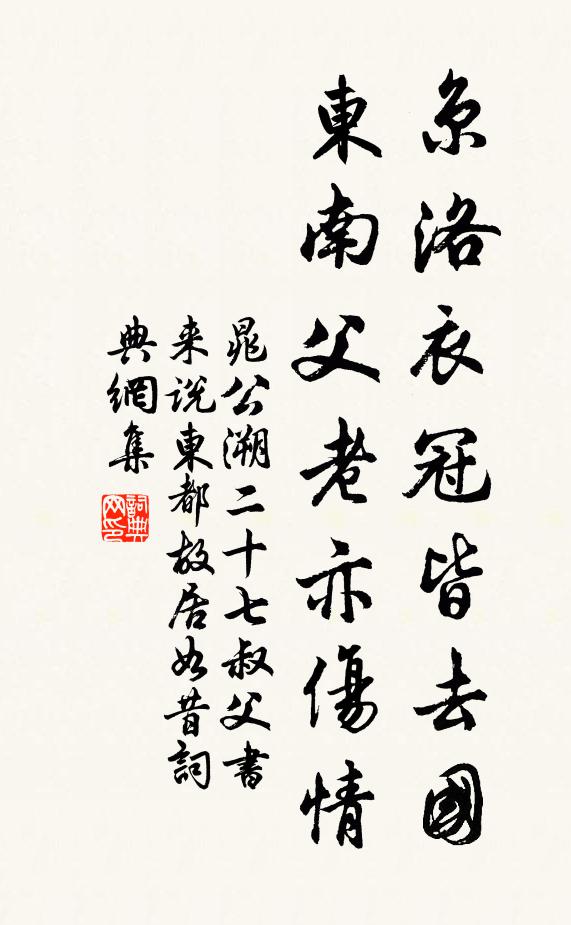 京洛衣冠皆去國
東南父老亦傷情
晁公溯二十七叔父書
来说東都故居如昔詞
典網集
詞典
网印